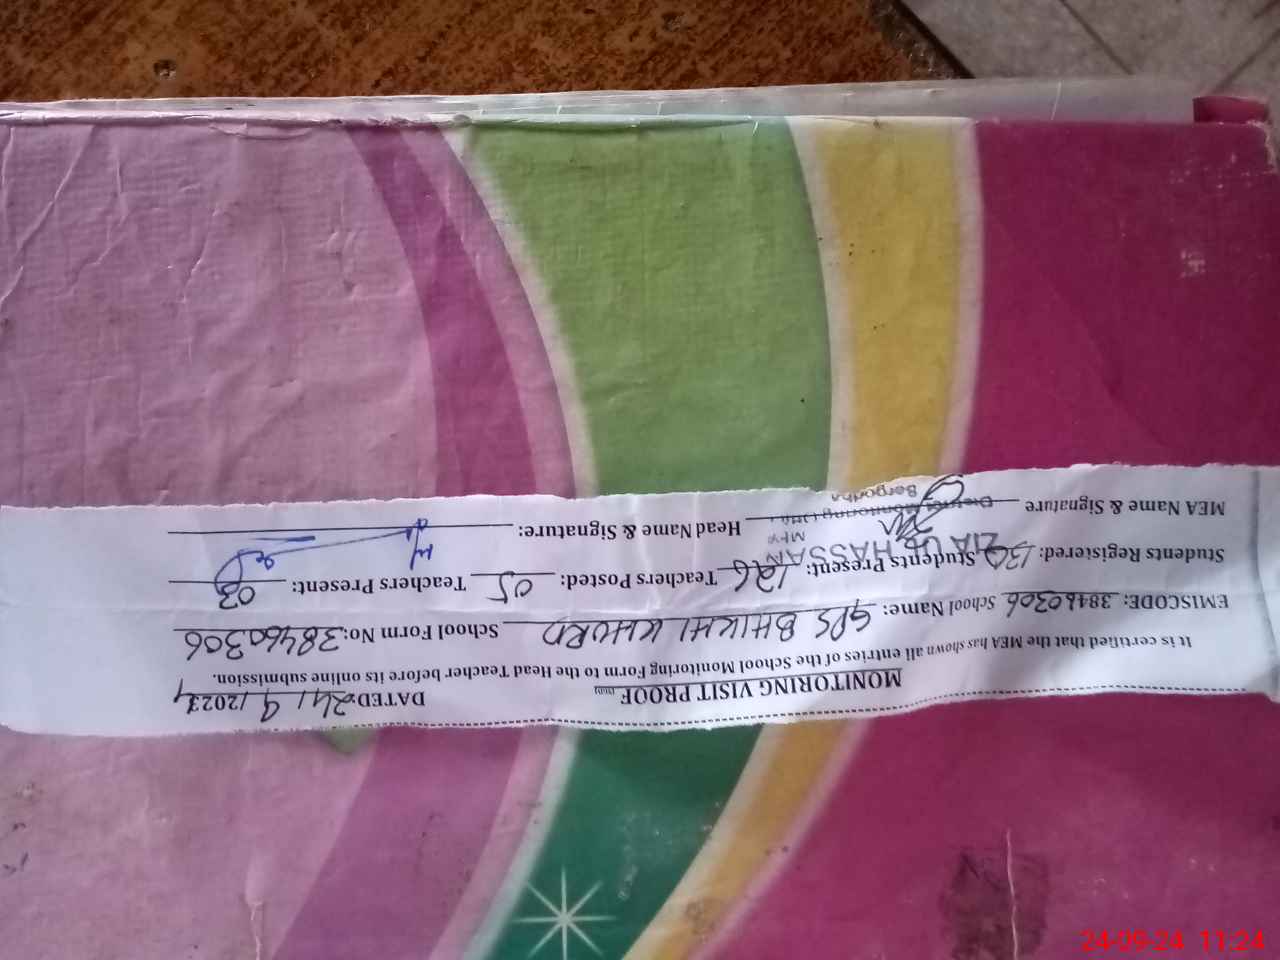 MONITORING VISIT PROOF DATED 24/9/2024
It is certified that the MEA has shown all entries of the School Monitoring Form to the Head Teacher before its online submission.
EMISCODE: 38460306 School Name: GPS BHIKHI KHURD School Form No: 38460306
Students Registered: 130 Students Present: 126 Teachers Posted: 05 Teachers Present: 03
ZIA UL HASSAN
MEA
MEA Name & Signature Head Name & Signature:
District Monitoring Office
Sargodha
24-09-24 11:24